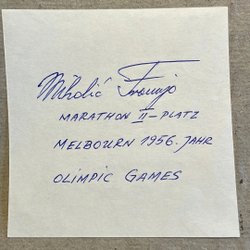 Mihalić Franjo
MARATHON II-PLATZ
MELBOURN 1956. JAHR
OLIMPIC GAMES